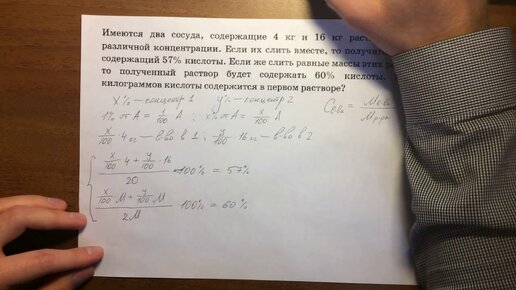 Имеются два сосуда, содержащие 4 кг и 16 кг
различной концентрации. Если их слить вместе, то
содержащий 57% кислоты. Если же слить равные массы этих
то полученный раствор будет содержать 60% кислоты.
килограммов кислоты содержится в первом растворе?
x% – концентр 1 y% – концентр 2
1% от A = 1/100 A ; x% от A = x/100 A
x/100 · 4 кг – в-во в 1 ; y/100 · 16 кг – в-во в 2
(x/100 · 4 + y/100 · 16)/20 · 100% = 57%
(x/100 M + y/100 M)/2M 100% = 60%